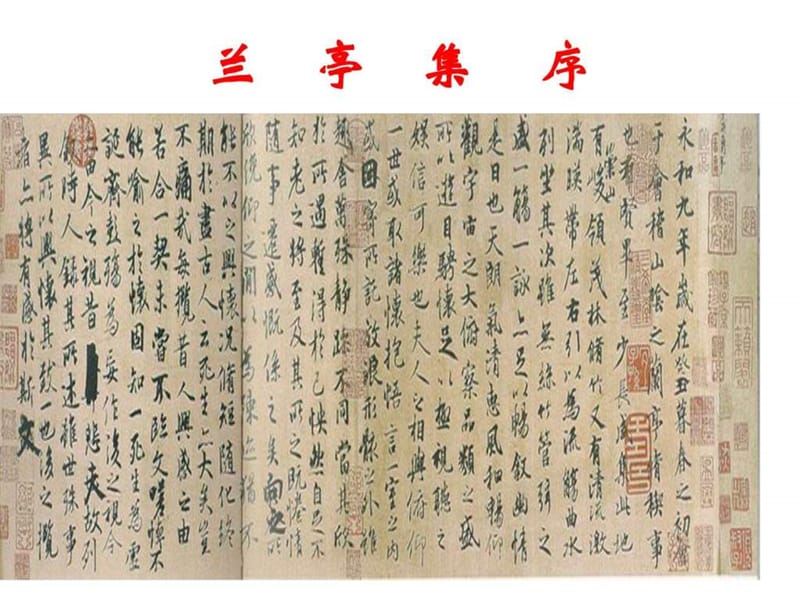 兰亭集序
永和九年歲在癸丑暮春之初會
于會稽山陰之蘭亭脩禊事
也羣賢畢至少長咸集此地
有崇山峻領茂林脩竹又有清流激
湍暎帶左右引以為流觴曲水
列坐其次雖無絲竹管弦之
盛一觴一詠亦足以暢敘幽情
是日也天朗氣清惠風和暢仰
觀宇宙之大俯察品類之盛
所以遊目騁懷足以極視聽之
娛信可樂也夫人之相與俯仰
一世或取諸懷抱悟言一室之內
或因寄所託放浪形骸之外雖
趣舍萬殊靜躁不同當其欣
於所遇蹔得於己怏然自足不
知老之將至及其所之既惓情
隨事遷感慨係之矣向之所
欣俛仰之間以為陳迹猶不
能不以之興懷況脩短隨化終
期於盡古人云死生亦大矣豈
不痛哉每攬昔人興感之由
若合一契未嘗不臨文嗟悼不
能喻之於懷固知一死生為虛
誕齊彭殤為妄作後之視今
亦由今之視昔悲夫故列
敘時人錄其所述雖世殊事
異所以興懷其致一也後之攬
者亦將有感於斯文